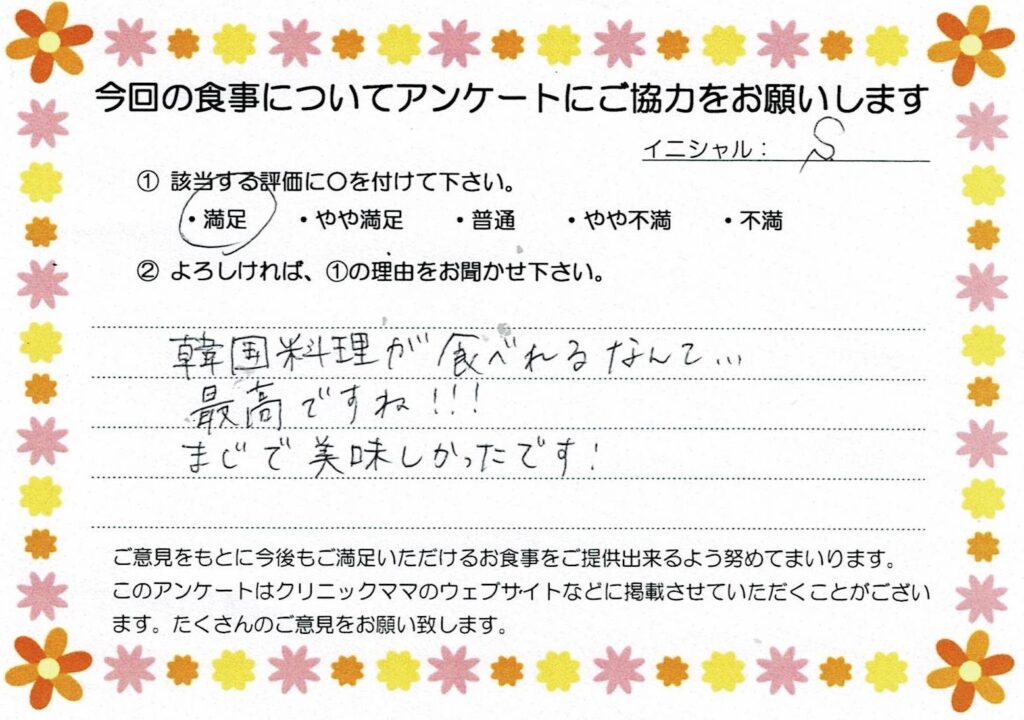 今回の食事についてアンケートにご協力をお願いします
イニシャル： S
① 該当する評価に〇を付けて下さい。
・満足 ・やや満足 ・普通 ・やや不満 ・不満
② よろしければ、①の理由をお聞かせ下さい。
韓国料理が食べれるなんて...
最高ですね!!!
まじで美味しかったです!
ご意見をもとに今後もご満足いただけるお食事をご提供出来るよう努めてまいります。
このアンケートはクリニックママのウェブサイトなどに掲載させていただくことがござい
ます。たくさんのご意見をお願い致します。